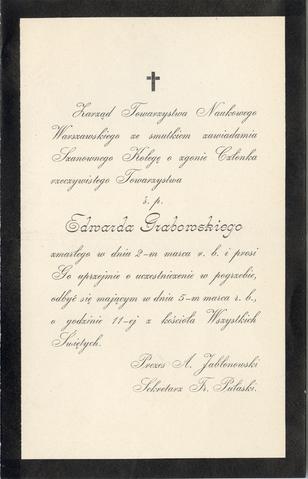 Zarząd Towarzystwa Naukowego
Warszawskiego ze smutkiem zawiadamia
Szanownego Kolegę o zgonie Członka
rzeczywistego Towarzystwa
ś. p.
Edwarda Grabowskiego
zmarłego w dniu 2-m marca r. b. i prosi
Go uprzejmie o uczestniczenie w pogrzebie,
odbyć się mającym w dniu 5-m marca r. b.,
o godzinie 11-ej z kościoła Wszystkich
Świętych.
Prezes A. Jabłonowski
Sekretarz Fr. Pułaski.